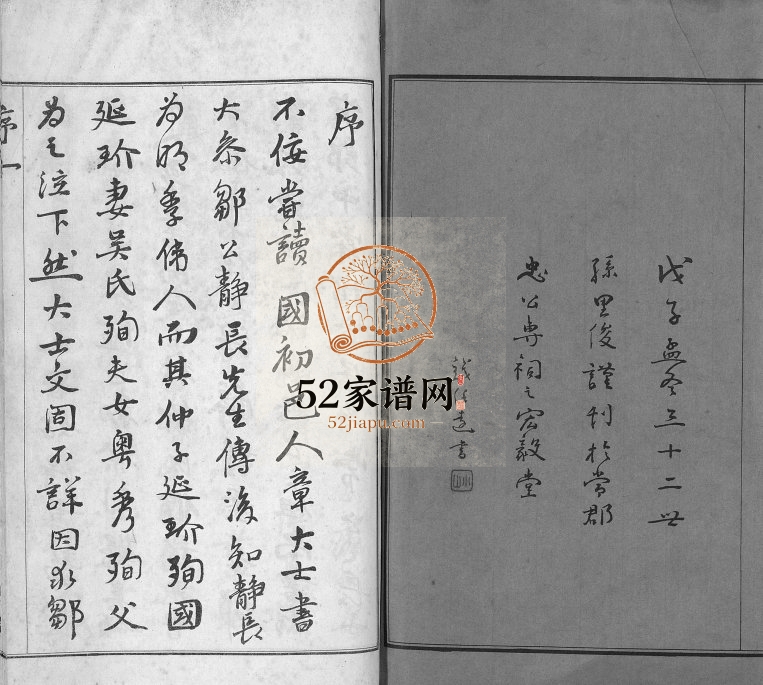 戊子孟冬三十二世
孫里俊謹刊於常郡
忠公專祠之宏毅堂
書
序
不佞嘗讀 國初邑人章大士書
大叅鄒公靜長先生傳後知靜長
為明季偉人而其仲子延玠殉國
延玠妻吳氏殉夫女粵秀殉父
為之泣下然大士文固不詳因求鄒
序一
52家谱网
52jiapu.com